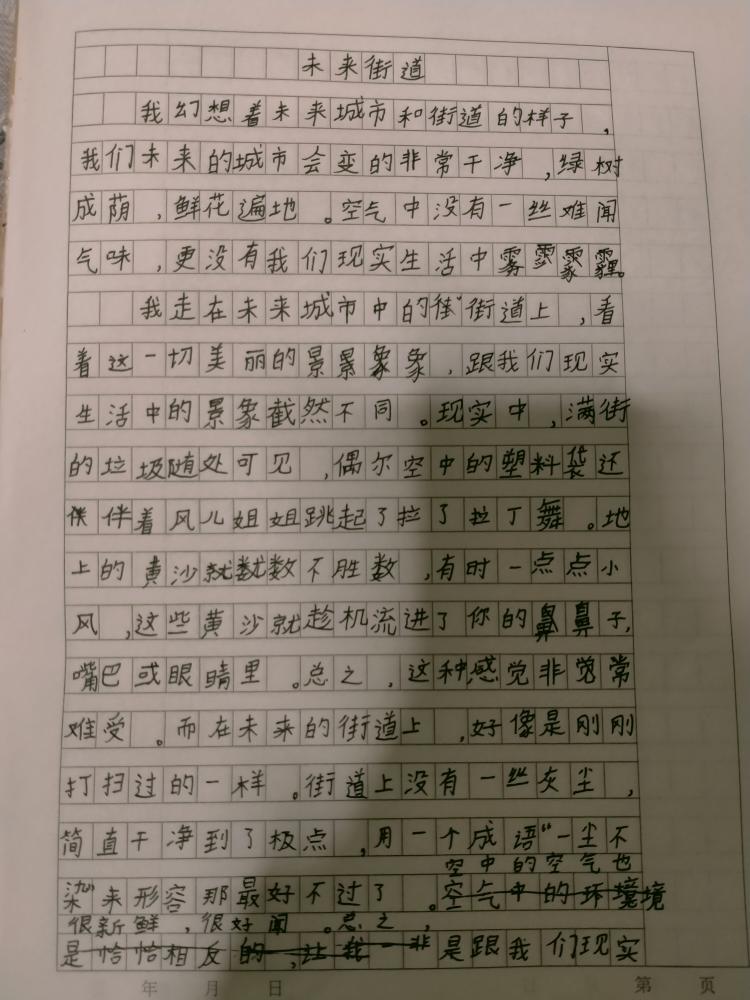 未来街道
我幻想着未来城市和街道的样子，
我们未来的城市会变的非常干净，绿树
成荫，鲜花遍地。空气中没有一丝难闻
气味，更没有我们现实生活中雾雾霾霾。
我走在未来城市中的街道上，看
着这一切美丽的景景象象，跟我们现实
生活中的景象截然不同。现实中，满街
的垃圾随处可见，偶尔空中的塑料袋还
伴伴着风儿姐姐跳起了拉丁拉丁舞。地
上的黄沙就数数不胜数，有时一点点小
风，这些黄沙就趁机流进了你的鼻鼻子，
嘴巴或眼睛里。总之，这种感觉非觉常
难受。而在未来的街道上，好像是刚刚
打扫过的一样。街道上没有一丝灰尘，
简直干净到了极点，用一个成语“一尘不
空中的空气也
染”来形容那最好不过了。空气中的环境境
很新鲜，很好闻。总之，
是恰恰相反的，让我一非是跟我们现实
年 月 日 第 页